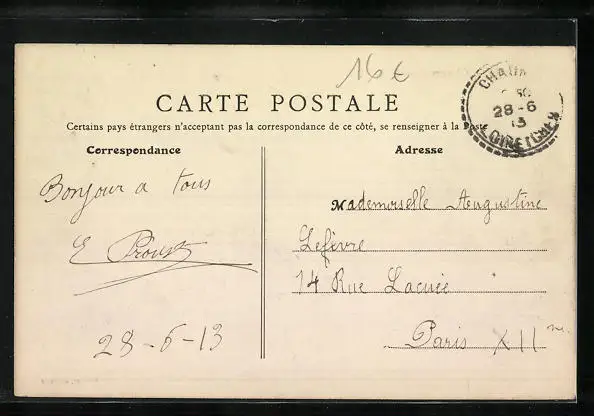 16 €
CARTE POSTALE
Certains pays étrangers n'acceptant pas la correspondance de ce côté, se renseigner à la Poste
Correspondance
Adresse
CHAUM
28-6
13
LOIR ET CHER
Bonjour a tous
E Proust
28-6-13
Mademoiselle Augustine
Lefèvre
14 Rue Lacuée
Paris XII me